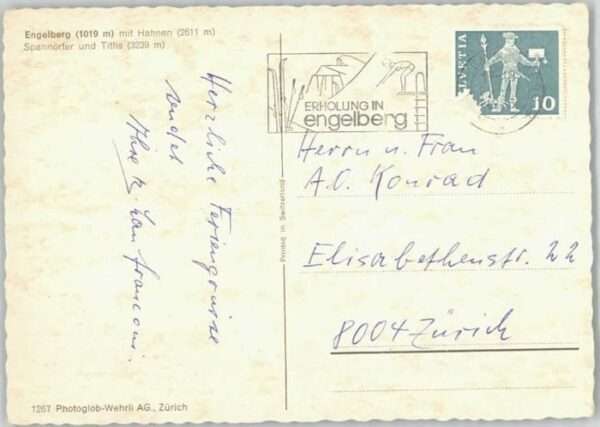 Engelberg (1019 m) mit Hahnen (2611 m)
Spannörter und Titlis (3239 m)
Herzliche Feriengrüsse
sendet
Ihre
HELVETIA
10
ERHOLUNG IN
engelberg
Herrn u. Frau
A.C. Konrad
Elisabethenstr. 22
8004 Zürich
1267 Photoglob-Wehrli AG., Zürich